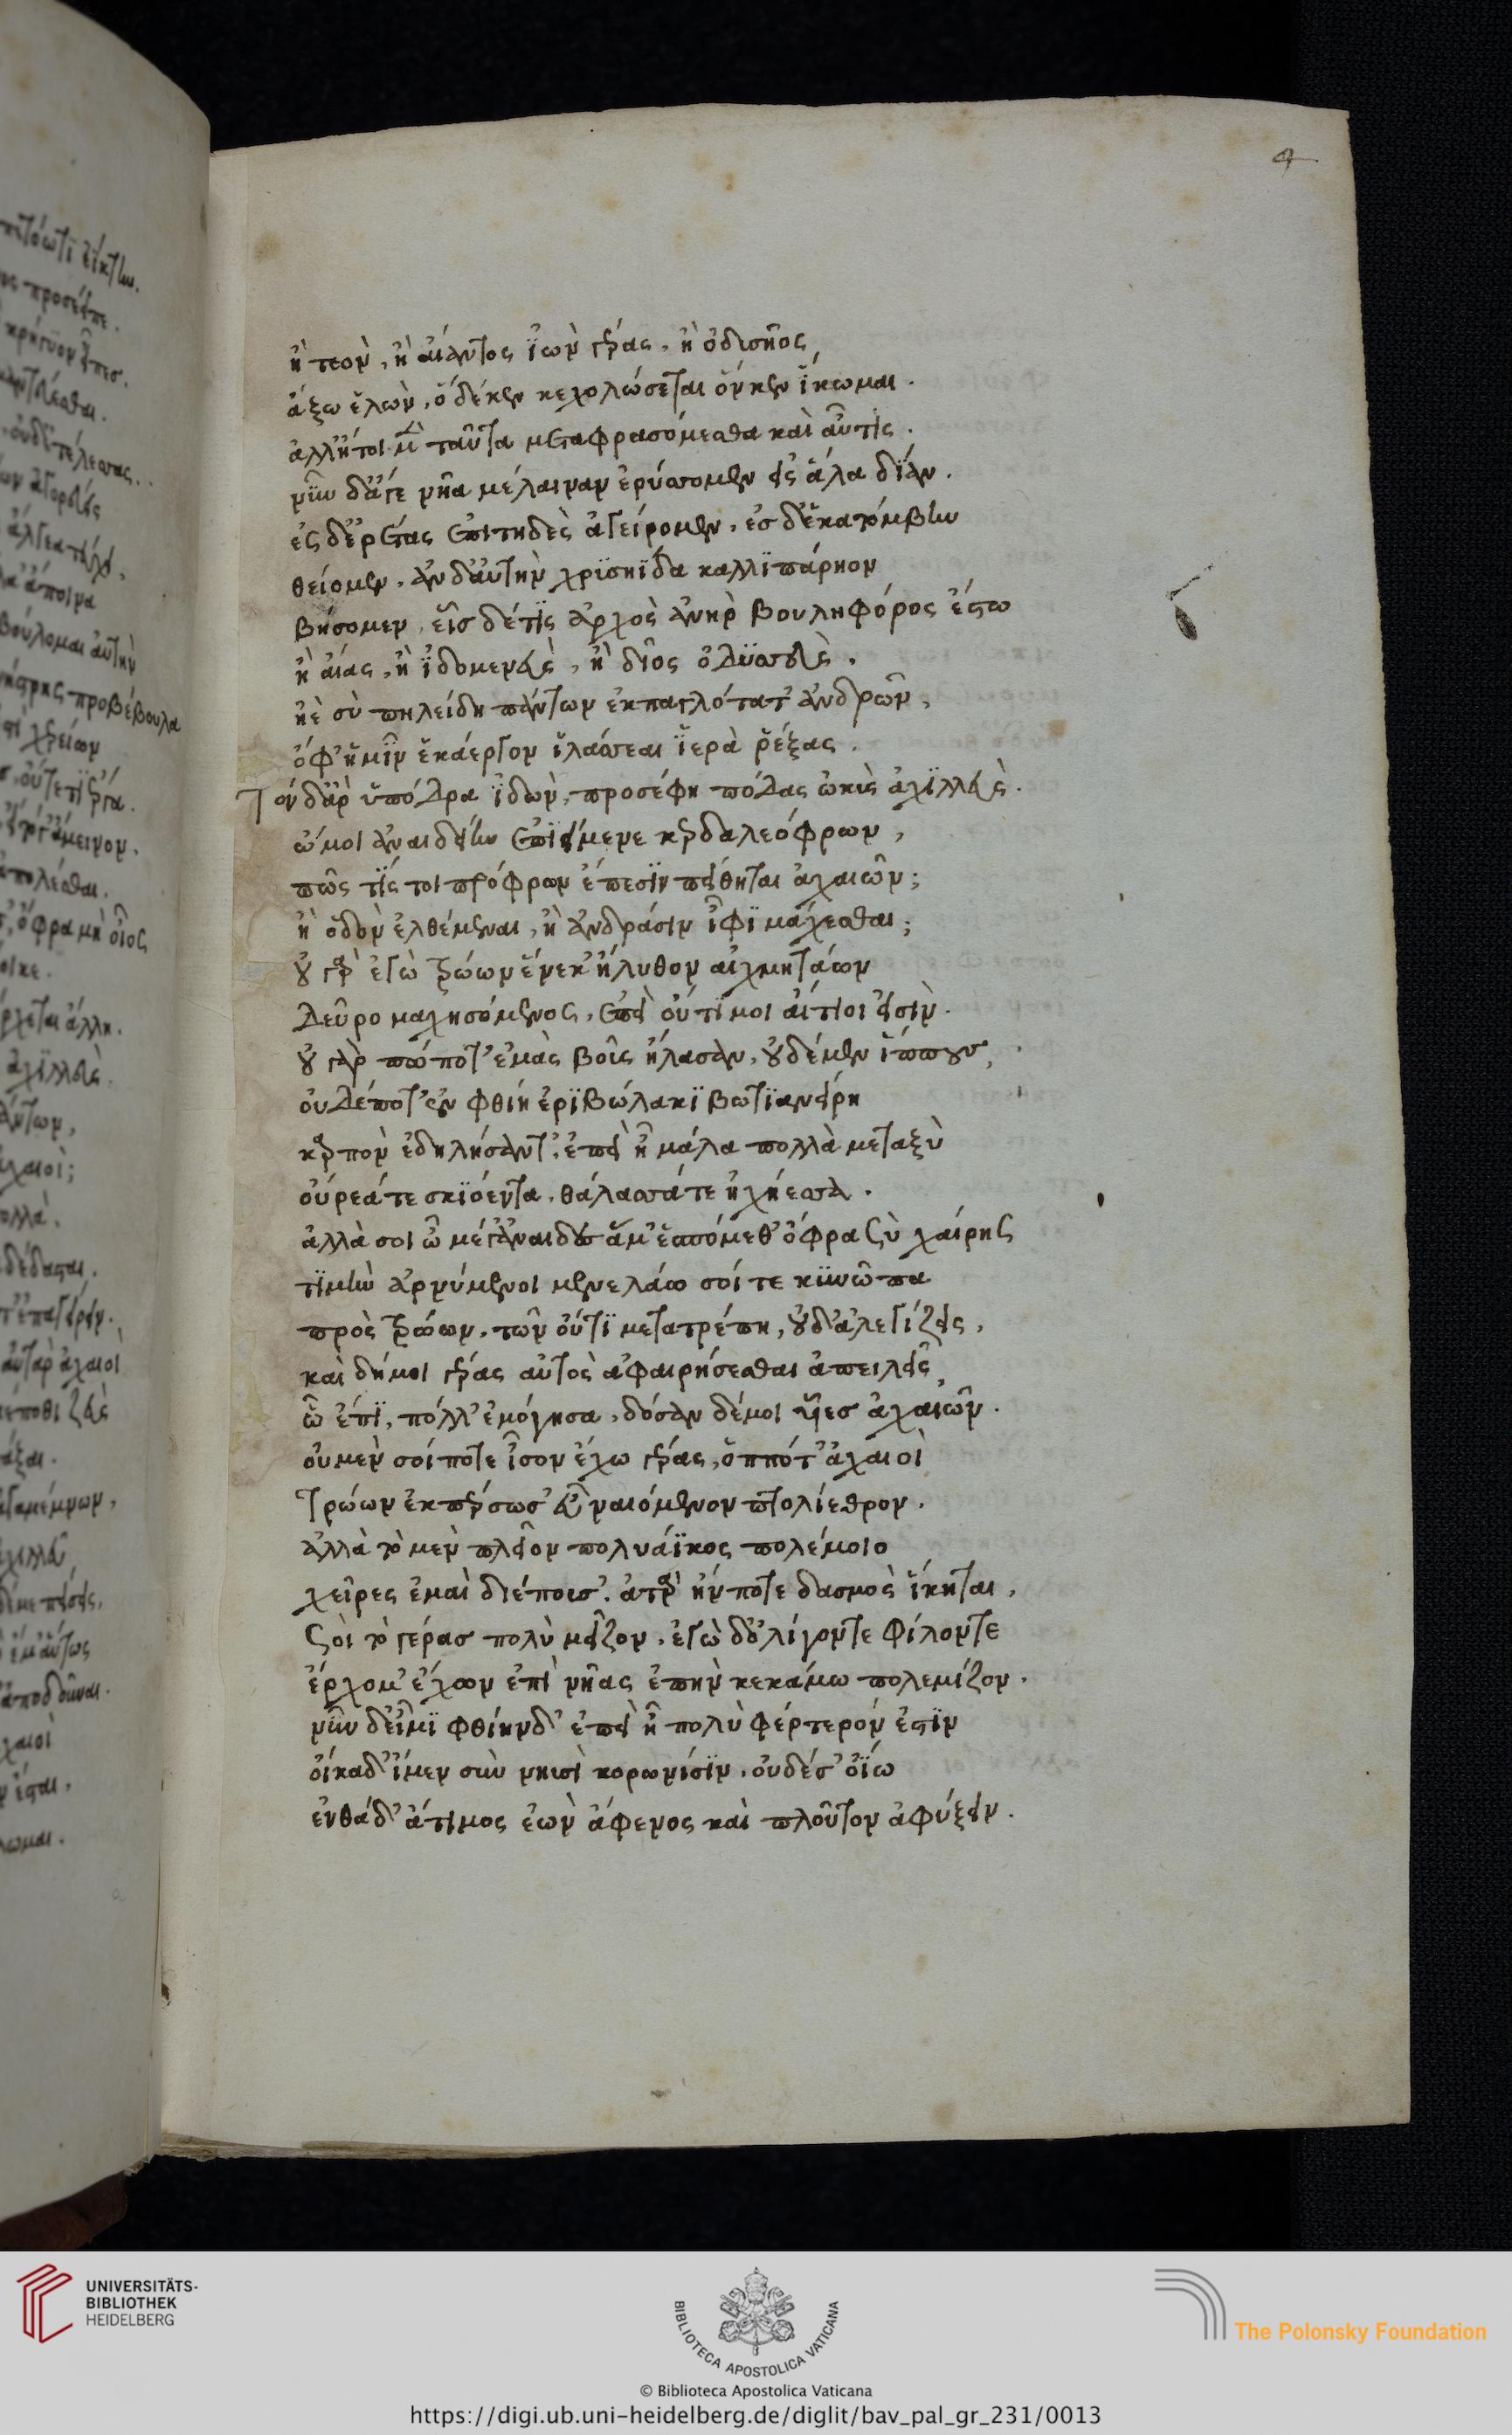 4
ἢ τεὸν, ἢ αἴαντος ἰὼν γέρας, ἢ ὀδυσῆος,
ἄξω ἑλὼν, ὁ δέ κεν κεχολώσεται ὅν κεν ἵκωμαι.
ἀλλ' ἤτοι μὲν ταῦτα μεταφρασόμεσθα καὶ αὖτις.
νῦν δ' ἄγε νῆα μέλαιναν ἐρύσσομεν εἰς ἅλα δῖαν.
ἐς δ' ἐρέτας ἐπιτηδὲς ἀγείρομεν, ἐς δ' ἑκατόμβην
θείομεν, ἂν δ' αὐτὴν χρυσηΐδα καλλιπάρηον
βήσομεν, εἷς δέ τις ἀρχὸς ἀνὴρ βουληφόρος ἔστω
ἢ αἴας, ἢ ἰδομενεὺς, ἢ δῖος ὀδυσσεὺς.
ἠὲ σὺ πηλείδη πάντων ἐκπαγλότατ' ἀνδρῶν,
ὄφ' ἥμιν ἑκάεργον ἱλάσσεαι ἱερὰ ῥέξας.
Τὸν δ' ἂρ ὑπόδρα ἰδὼν, προσέφη πόδας ὠκὺς ἀχιλλεὺς.
ὤμοι ἀναιδείην ἐπιειμένε κερδαλεόφρων,
πῶς τίς τοι πρόφρων ἔπεσιν πείθηται ἀχαιῶν;
ἢ ὁδὸν ἐλθέμεναι, ἢ ἀνδράσιν ἶφι μάχεσθαι;
οὐ γὰρ ἐγὼ τρώων ἕνεκ' ἤλυθον αἰχμητάων
δεῦρο μαχησόμενος, ἐπεὶ οὔτι μοι αἴτιοι εἰσὶν.
οὐ γὰρ πώποτ' ἐμὰς βοῦς ἤλασαν, οὐδὲ μὲν ἵππους,
οὐδέποτ' ἐν φθίη ἐριβώλακι βωτιανείρη
καρπὸν ἐδηλήσαντ', ἐπεὶ ἦ μάλα πολλὰ μεταξὺ
οὔρεά τε σκιόεντα, θάλασσά τε ἠχήεσσα.
ἀλλὰ σοι ὦ μέγ' ἀναιδὲς ἅμ' ἑσπόμεθ' ὄφρα σὺ χαίρης
τιμὴν ἀρνύμενοι μενελάω σοί τε κυνῶπα
πρὸς τρώων, τῶν οὔτι μετατρέπη, οὐδ' ἀλεγίζεις,
καὶ δή μοι γέρας αὐτὸς ἀφαιρήσεσθαι ἀπειλεῖς,
ᾧ ἔπι, πόλλ' ἐμόγησα, δόσαν δέ μοι υἷες ἀχαιῶν.
οὐ μὲν σοί ποτε ἶσον ἔχω γέρας, ὁππότ' ἀχαιοὶ
Τρώων ἐκπέρσωσ' εὖ ναιόμενον πτολίεθρον.
ἀλλὰ τὸ μὲν πλεῖον πολυάϊκος πολέμοιο
χεῖρες ἐμαὶ διέπουσ'. ἀτὰρ ἤν ποτε δασμὸς ἵκηται,
σοὶ τὸ γέρας πολὺ μεῖζον, ἐγὼ δ' ὀλίγον τε φίλον τε
ἔρχομ' ἔχων ἐπὶ νῆας ἐπὴν κεκάμω πολεμίζων.
νῦν δ' εἶμι φθίηνδ' ἐπεὶ ἦ πολὺ φέρτερόν ἐστιν
οἴκαδ' ἴμεν σὺν νηυσὶ κορωνίσιν, οὐδέ σ' ὀΐω
ἐνθάδ' ἄτιμος ἐὼν ἄφενος καὶ πλοῦτον ἀφύξειν.
UNIVERSITÄTS-
BIBLIOTHEK
HEIDELBERG
BIBLIOTECA APOSTOLICA VATICANA
The Polonsky Foundation
© Biblioteca Apostolica Vaticana
https://digi.ub.uni-heidelberg.de/diglit/bav_pal_gr_231/0013